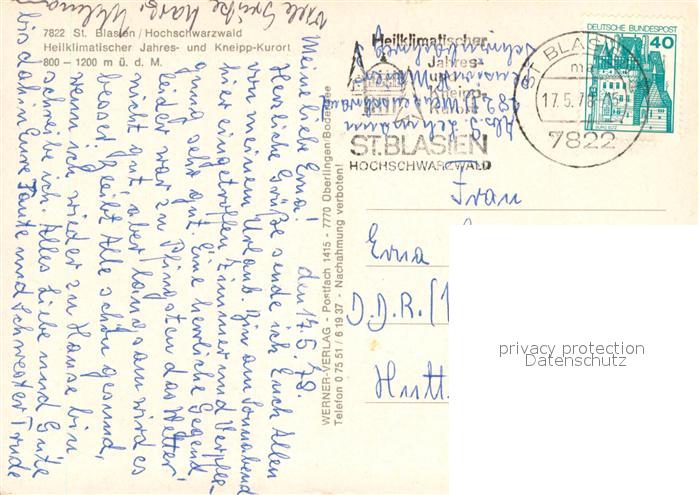 7822 St. Blasien / Hochschwarzwald
Heilklimatischer Jahres- und Kneipp-Kurort
800 – 1200 m ü. d. M.
den 17.5.78.
Meine liebe Erna!
Herzliche Grüße sende ich Euch Allen
von meinem Urlaub. Bin am Sonnabend
hier eingetroffen, Zimmer und Verpfle-
gung sehr gut. Eine herrliche Gegend
leider war zu Pfingsten das Wetter
nicht gut, aber langsam wird es
besser. Bleibt Alle schön gesund,
wenn ich wieder zu Hause bin
schreibe ich. Alles Liebe und Gute
bis dahin Eure Tante und Schwester Trude
Viele Grüße
WERNER-VERLAG - Postfach 1415 - 7770 Überlingen/Bodensee
Telefon 0 75 51 / 6 19 37 - Nachahmung verboten!
Abs. J. Lehmann
Heilklimatischer
Jahres-
und
Kneipp-
Kurort
ST. BLASIEN
HOCHSCHWARZWALD
ST BLASIEN
17.5.78
7822
DEUTSCHE BUNDESPOST
40
Frau
Erna
D.D.R.
Hutt.
privacy protection
Datenschutz